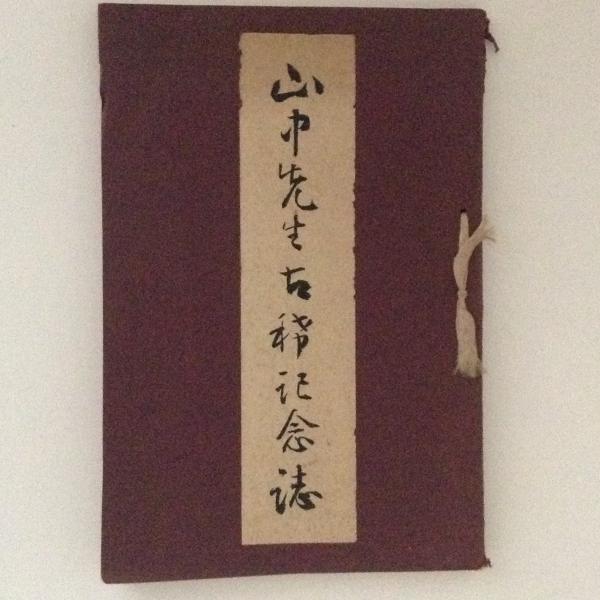 山中先生古稀記念誌